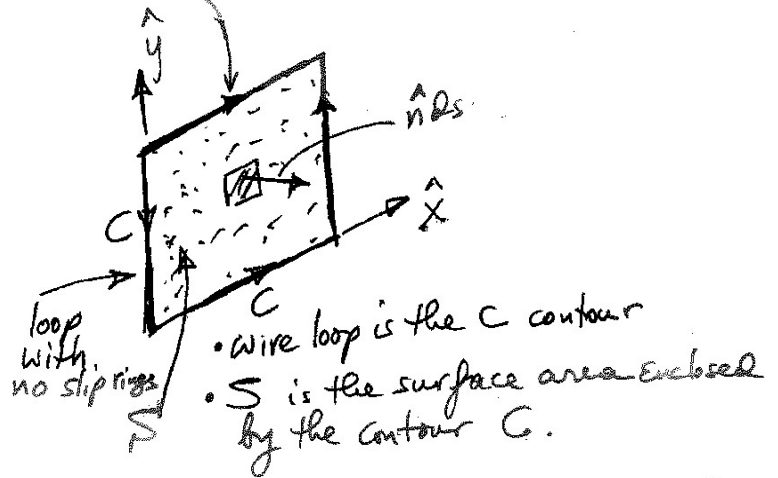 ŷ
n̂ ds
x̂
C
C
loop
with
no slip rings
S
• wire loop is the C contour
• S is the surface area enclosed
by the contour C.